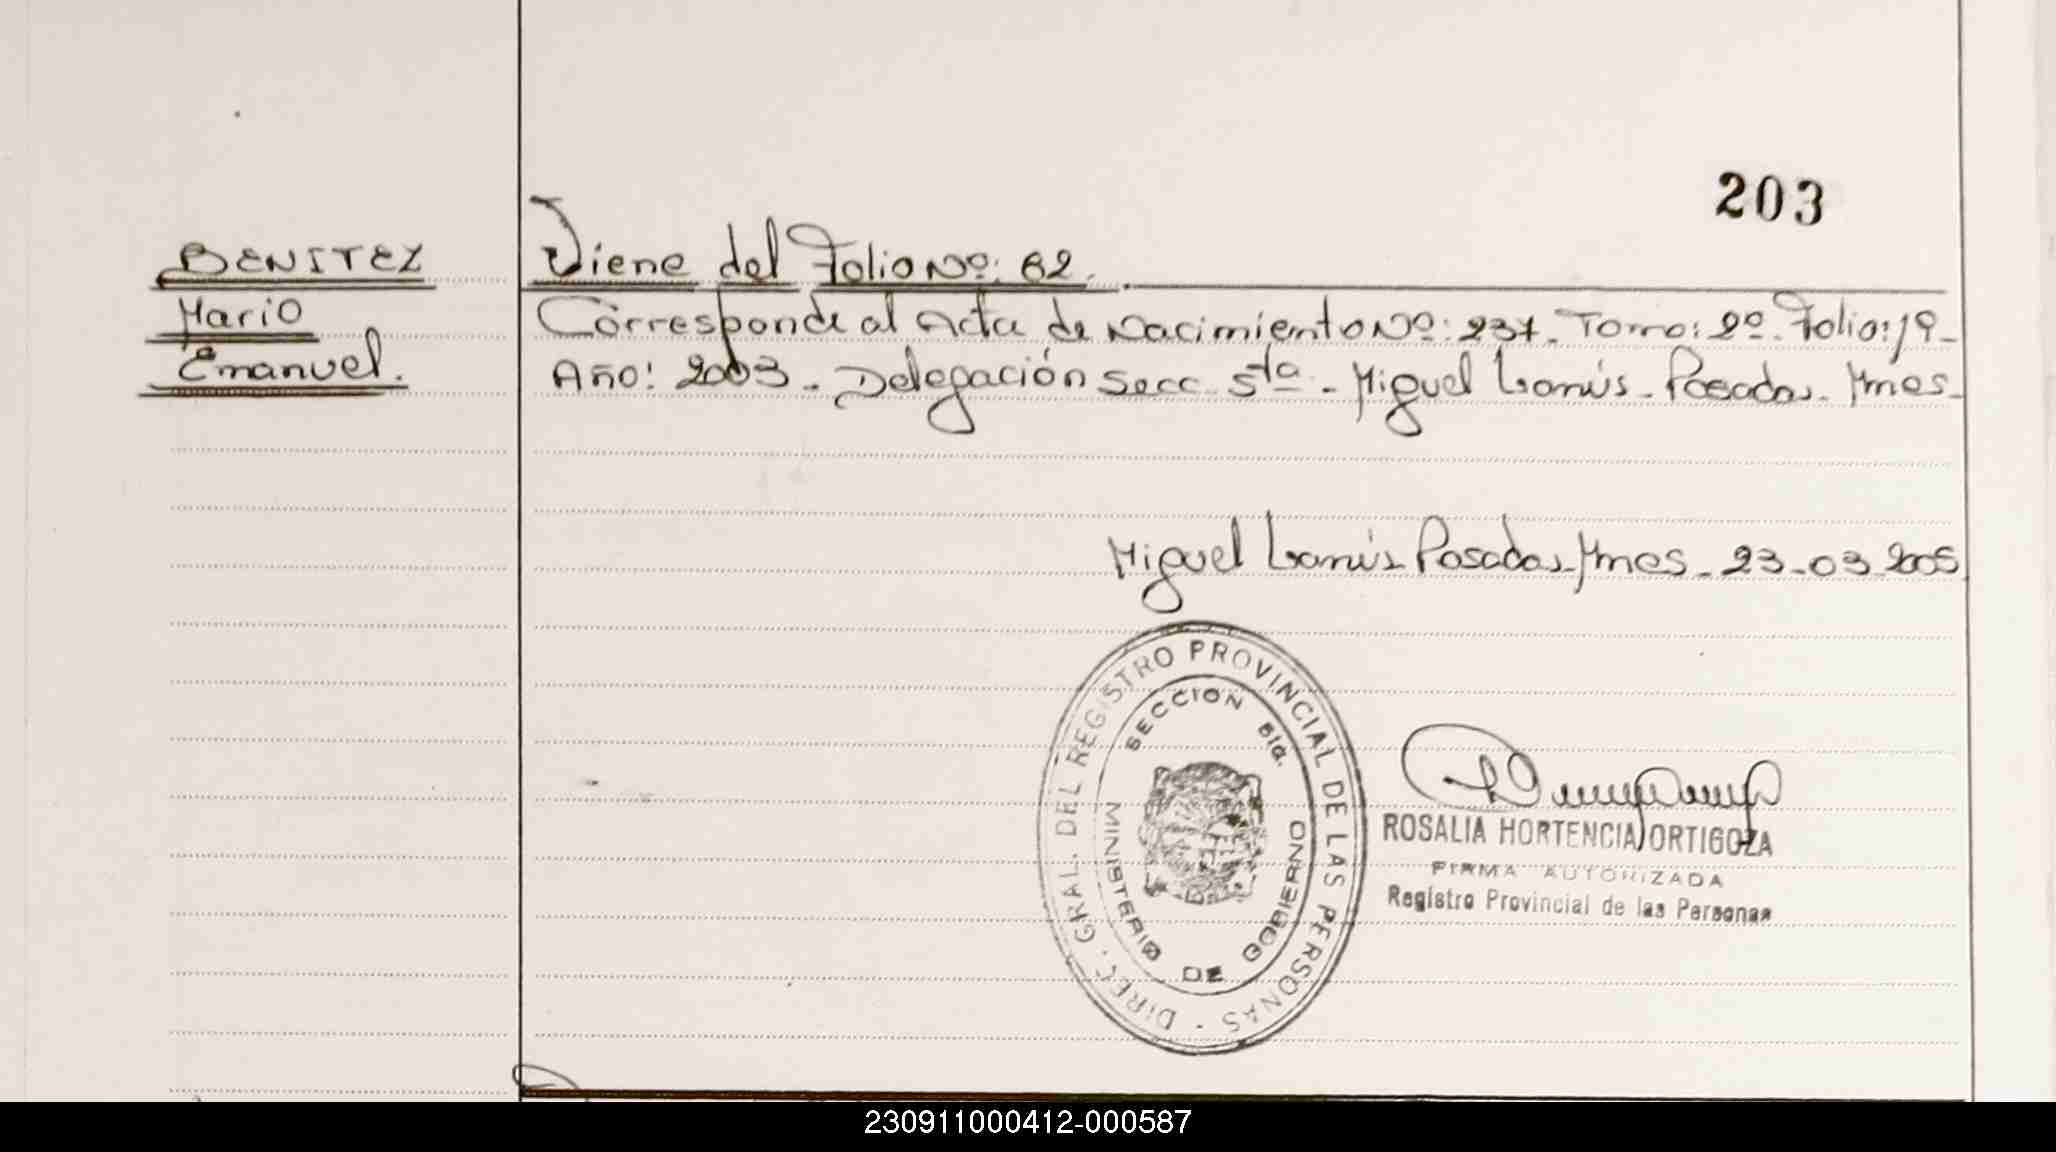 203
BENITEZ
Mario
Emanuel.
Viene del Folio Nº: 62.
Corresponde al Acta de Nacimiento Nº: 237. Tomo: 2º. Folio: 19-
Año: 2003 - Delegación Secc. 5ta - Miguel Lanús - Posadas - Mnes-
Miguel Lanús Posadas - Mnes - 23-03-2005
DIREC. GRAL. DEL REGISTRO PROVINCIAL DE LAS PERSONAS -
SECCION 5ta.
MINISTERIO DE GOBIERNO
ROSALIA HORTENCIA ORTIGOZA
FIRMA AUTORIZADA
Registro Provincial de las Personas
230911000412-000587